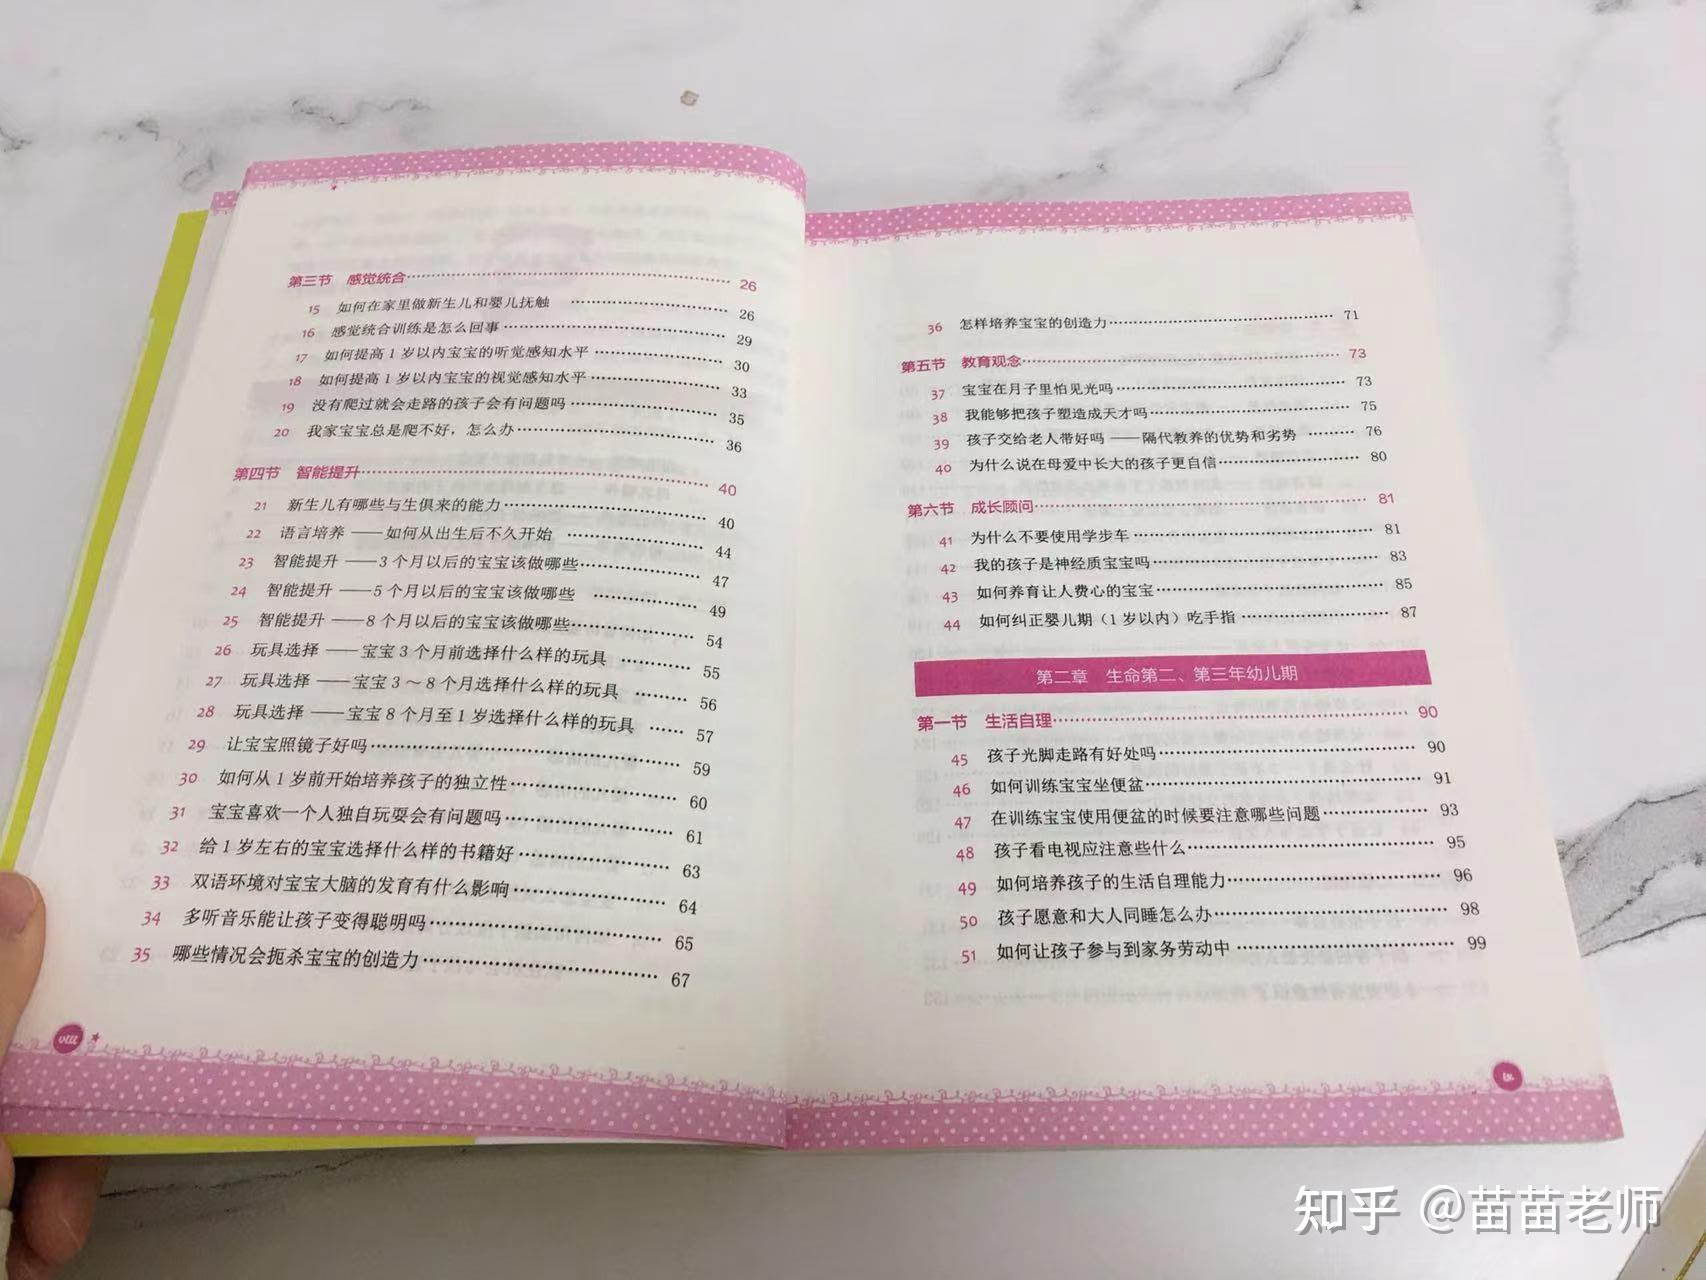 第三节 感觉统合 26
15 如何在家里做新生儿和婴儿抚触 26
16 感觉统合训练是怎么回事 29
17 如何提高1岁以内宝宝的听觉感知水平 30
18 如何提高1岁以内宝宝的视觉感知水平 33
19 没有爬过就会走路的孩子会有问题吗 35
20 我家宝宝总是爬不好，怎么办 36
第四节 智能提升 40
21 新生儿有哪些与生俱来的能力 40
22 语言培养——如何从出生后不久开始 44
23 智能提升——3个月以后的宝宝该做哪些 47
24 智能提升——5个月以后的宝宝该做哪些 49
25 智能提升——8个月以后的宝宝该做哪些 54
26 玩具选择——宝宝3个月前选择什么样的玩具 55
27 玩具选择——宝宝3～8个月选择什么样的玩具 56
28 玩具选择——宝宝8个月至1岁选择什么样的玩具 57
29 让宝宝照镜子好吗 59
30 如何从1岁前开始培养孩子的独立性 60
31 宝宝喜欢一个人独自玩耍会有问题吗 61
32 给1岁左右的宝宝选择什么样的书籍好 63
33 双语环境对宝宝大脑的发育有什么影响 64
34 多听音乐能让孩子变得聪明吗 65
35 哪些情况会扼杀宝宝的创造力 67
viii
36 怎样培养宝宝的创造力 71
第五节 教育观念 73
37 宝宝在月子里怕见光吗 73
38 我能够把孩子塑造成天才吗 75
39 孩子交给老人带好吗——隔代教养的优势和劣势 76
40 为什么说在母爱中长大的孩子更自信 80
第六节 成长顾问 81
41 为什么不要使用学步车 81
42 我的孩子是神经质宝宝吗 83
43 如何养育让人费心的宝宝 85
44 如何纠正婴儿期（1岁以内）吃手指 87
第二章 生命第二、第三年幼儿期
第一节 生活自理 90
45 孩子光脚走路有好处吗 90
46 如何训练宝宝坐便盆 91
47 在训练宝宝使用便盆的时候要注意哪些问题 93
48 孩子看电视应注意些什么 95
49 如何培养孩子的生活自理能力 96
50 孩子愿意和大人同睡怎么办 98
51 如何让孩子参与到家务劳动中 99
ix
知乎 @苗苗老师